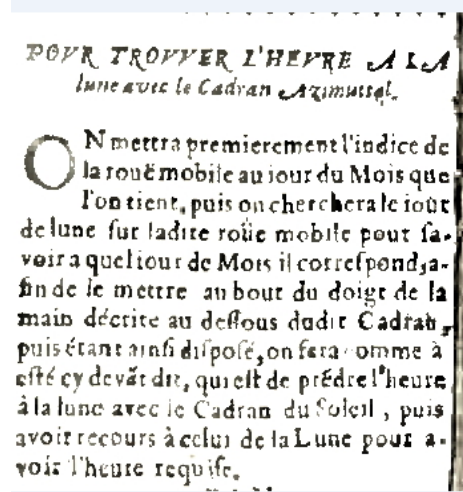 POVR TROVVER L'HEVRE A LA
lune avec le Cadran Azimuttal.
ON mettra premierement l'indice de
la rouë mobile au iour du Mois que
l'on tient, puis on chercherale ioûr
de lune sur ladite roüe mobile pour sa-
voir a quel iour de Mois il correspond, a-
fin de le mettre au bout du doigt de la
main décrite au dessous dudit Cadran,
puis étant ainsi disposé, on fera comme à
esté cy devãt dit, qui est de prẽdre l'heure
à la lune avec le Cadran du Soleil, puis
avoir recours à celui de la Lune pour a-
voir l'heure requise.